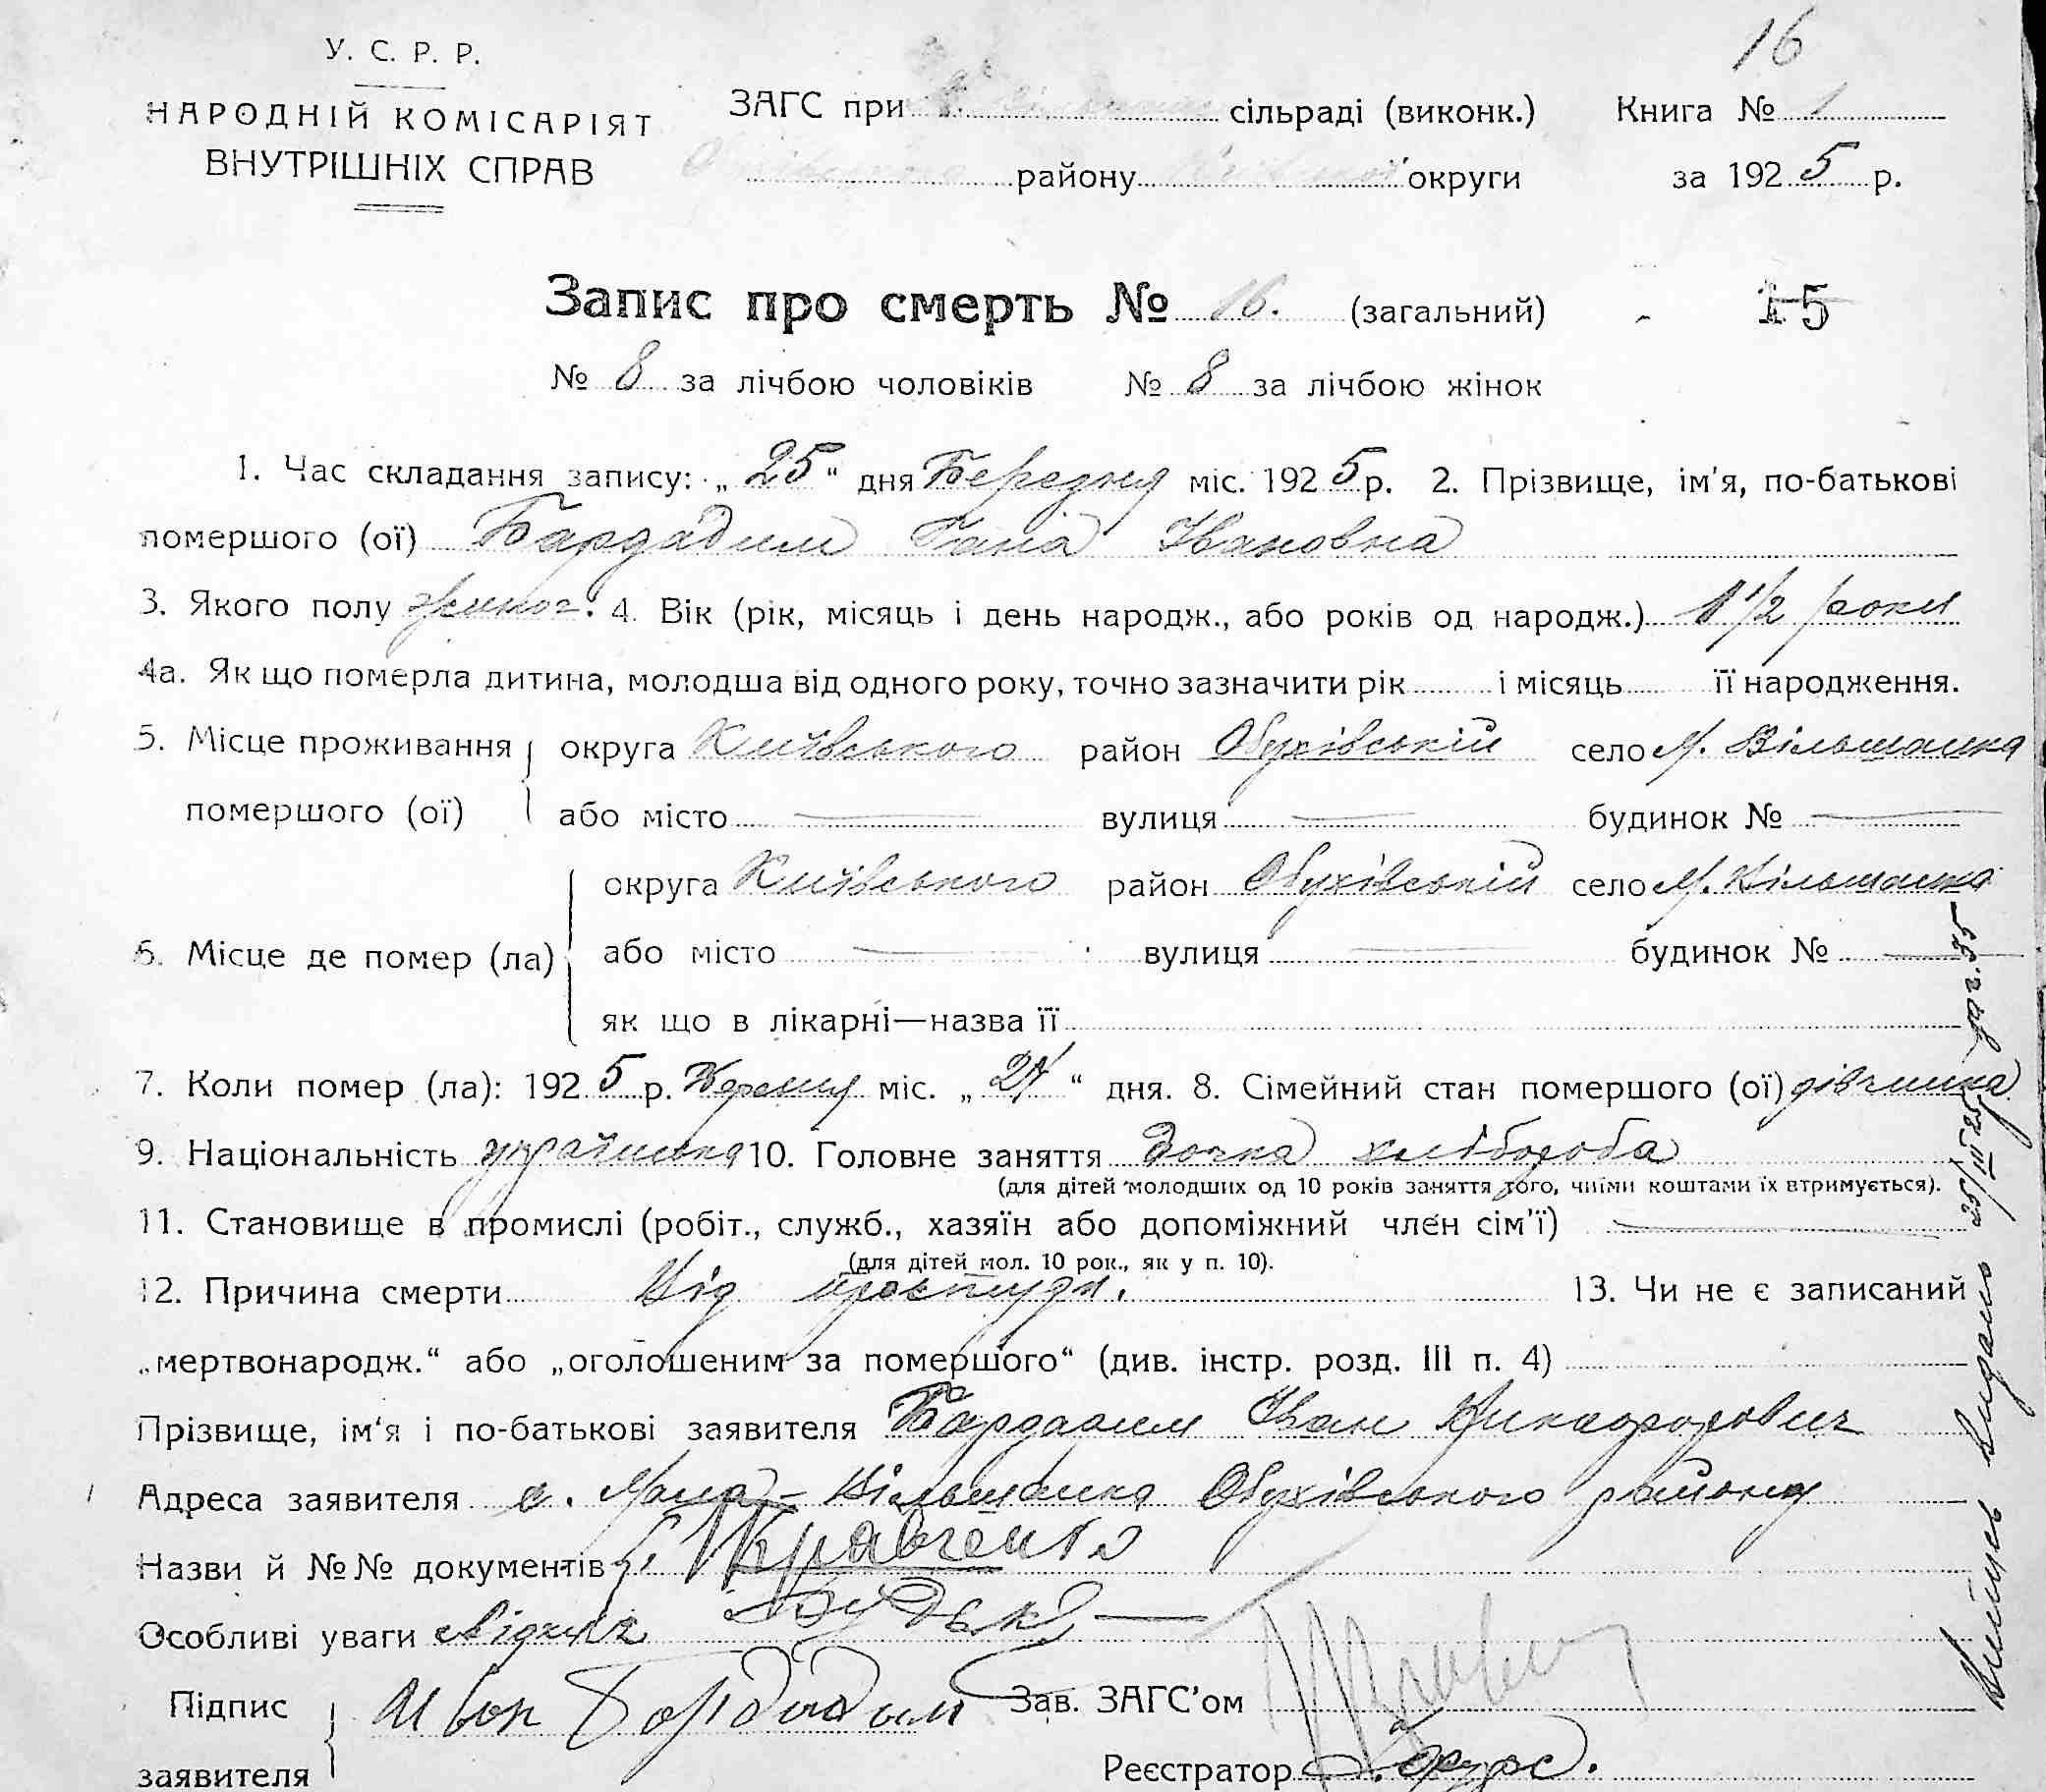 16
У. С. Р. Р.
НАРОДНІЙ КОМІСАРІЯТ
ВНУТРІШНІХ СПРАВ
ЗАГС при сільраді (виконк.) Книга № 1
району округи за 1925 р.
Запис про смерть № 16. (загальний) 15
№ 8 за лічбою чоловіків № 8 за лічбою жінок
1. Час складання запису: „25“ дня Березня міс. 1925 р. 2. Прізвище, ім'я, по-батькові
помершого (ої) Бардадим Ганя Івановна
3. Якого полу жиноч. 4. Вік (рік, місяць і день народж., або років од народж.) 1 1/2 роки
4а. Як що померла дитина, молодша від одного року, точно зазначити рік і місяць її народження.
5. Місце проживання помершого (ої) округа Київського район Обухівській село М. Вільшанка
або місто — вулиця — будинок № —
6. Місце де помер (ла) округа Київського район Обухівській село М. Вільшанка
або місто — вулиця — будинок № —
як що в лікарні—назва її
7. Коли помер (ла): 1925 р. Березня міс. „24“ дня. 8. Сімейний стан помершого (ої) дівчинка
9. Національність українка 10. Головне заняття дочка хлібороба
(для дітей молодших од 10 років заняття того, чиїми коштами їх втримується).
11. Становище в промислі (робіт., служб., хазяїн або допоміжний член сім'ї) —
(для дітей мол. 10 рок., як у п. 10).
12. Причина смерти Від простуди. 13. Чи не є записаний
„мертвонародж.“ або „оголошеним за помершого“ (див. інстр. розд. III п. 4)
Прізвище, ім'я і по-батькові заявителя Бардадим Іван Никифорович
Адреса заявителя с. Мала-Вільшанка Обухівського району
Назви й №№ документів Кравченко
Особливі уваги свідки Будьк
Підпис заявителя Иван Бордадым Зав. ЗАГС'ом
Реєстратор
Випись видано 25/III 25 за ч. 35